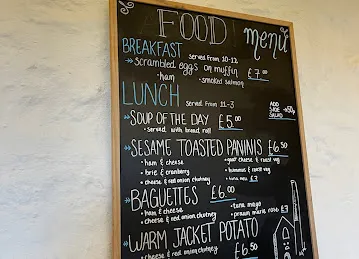 FOOD menu
BREAKFAST served from 10-12
scrambled eggs on muffin £7.00
•ham •smoked salmon
LUNCH served from 11-3
ADD SIDE SALAD → 50p
SOUP OF THE DAY £5.00
• served with bread roll
SESAME TOASTED PANINIS £6.50
• ham & cheese • goat cheese & roast veg
• brie & cranberry • hummus & roast veg
• cheese & red onion chutney • tuna melt £7
BAGUETTES £6.00
• ham & cheese • tuna mayo
• cheese & red onion chutney • prawn marie rose £7
WARM JACKET POTATO £6.50
• cheese & red onion chutney